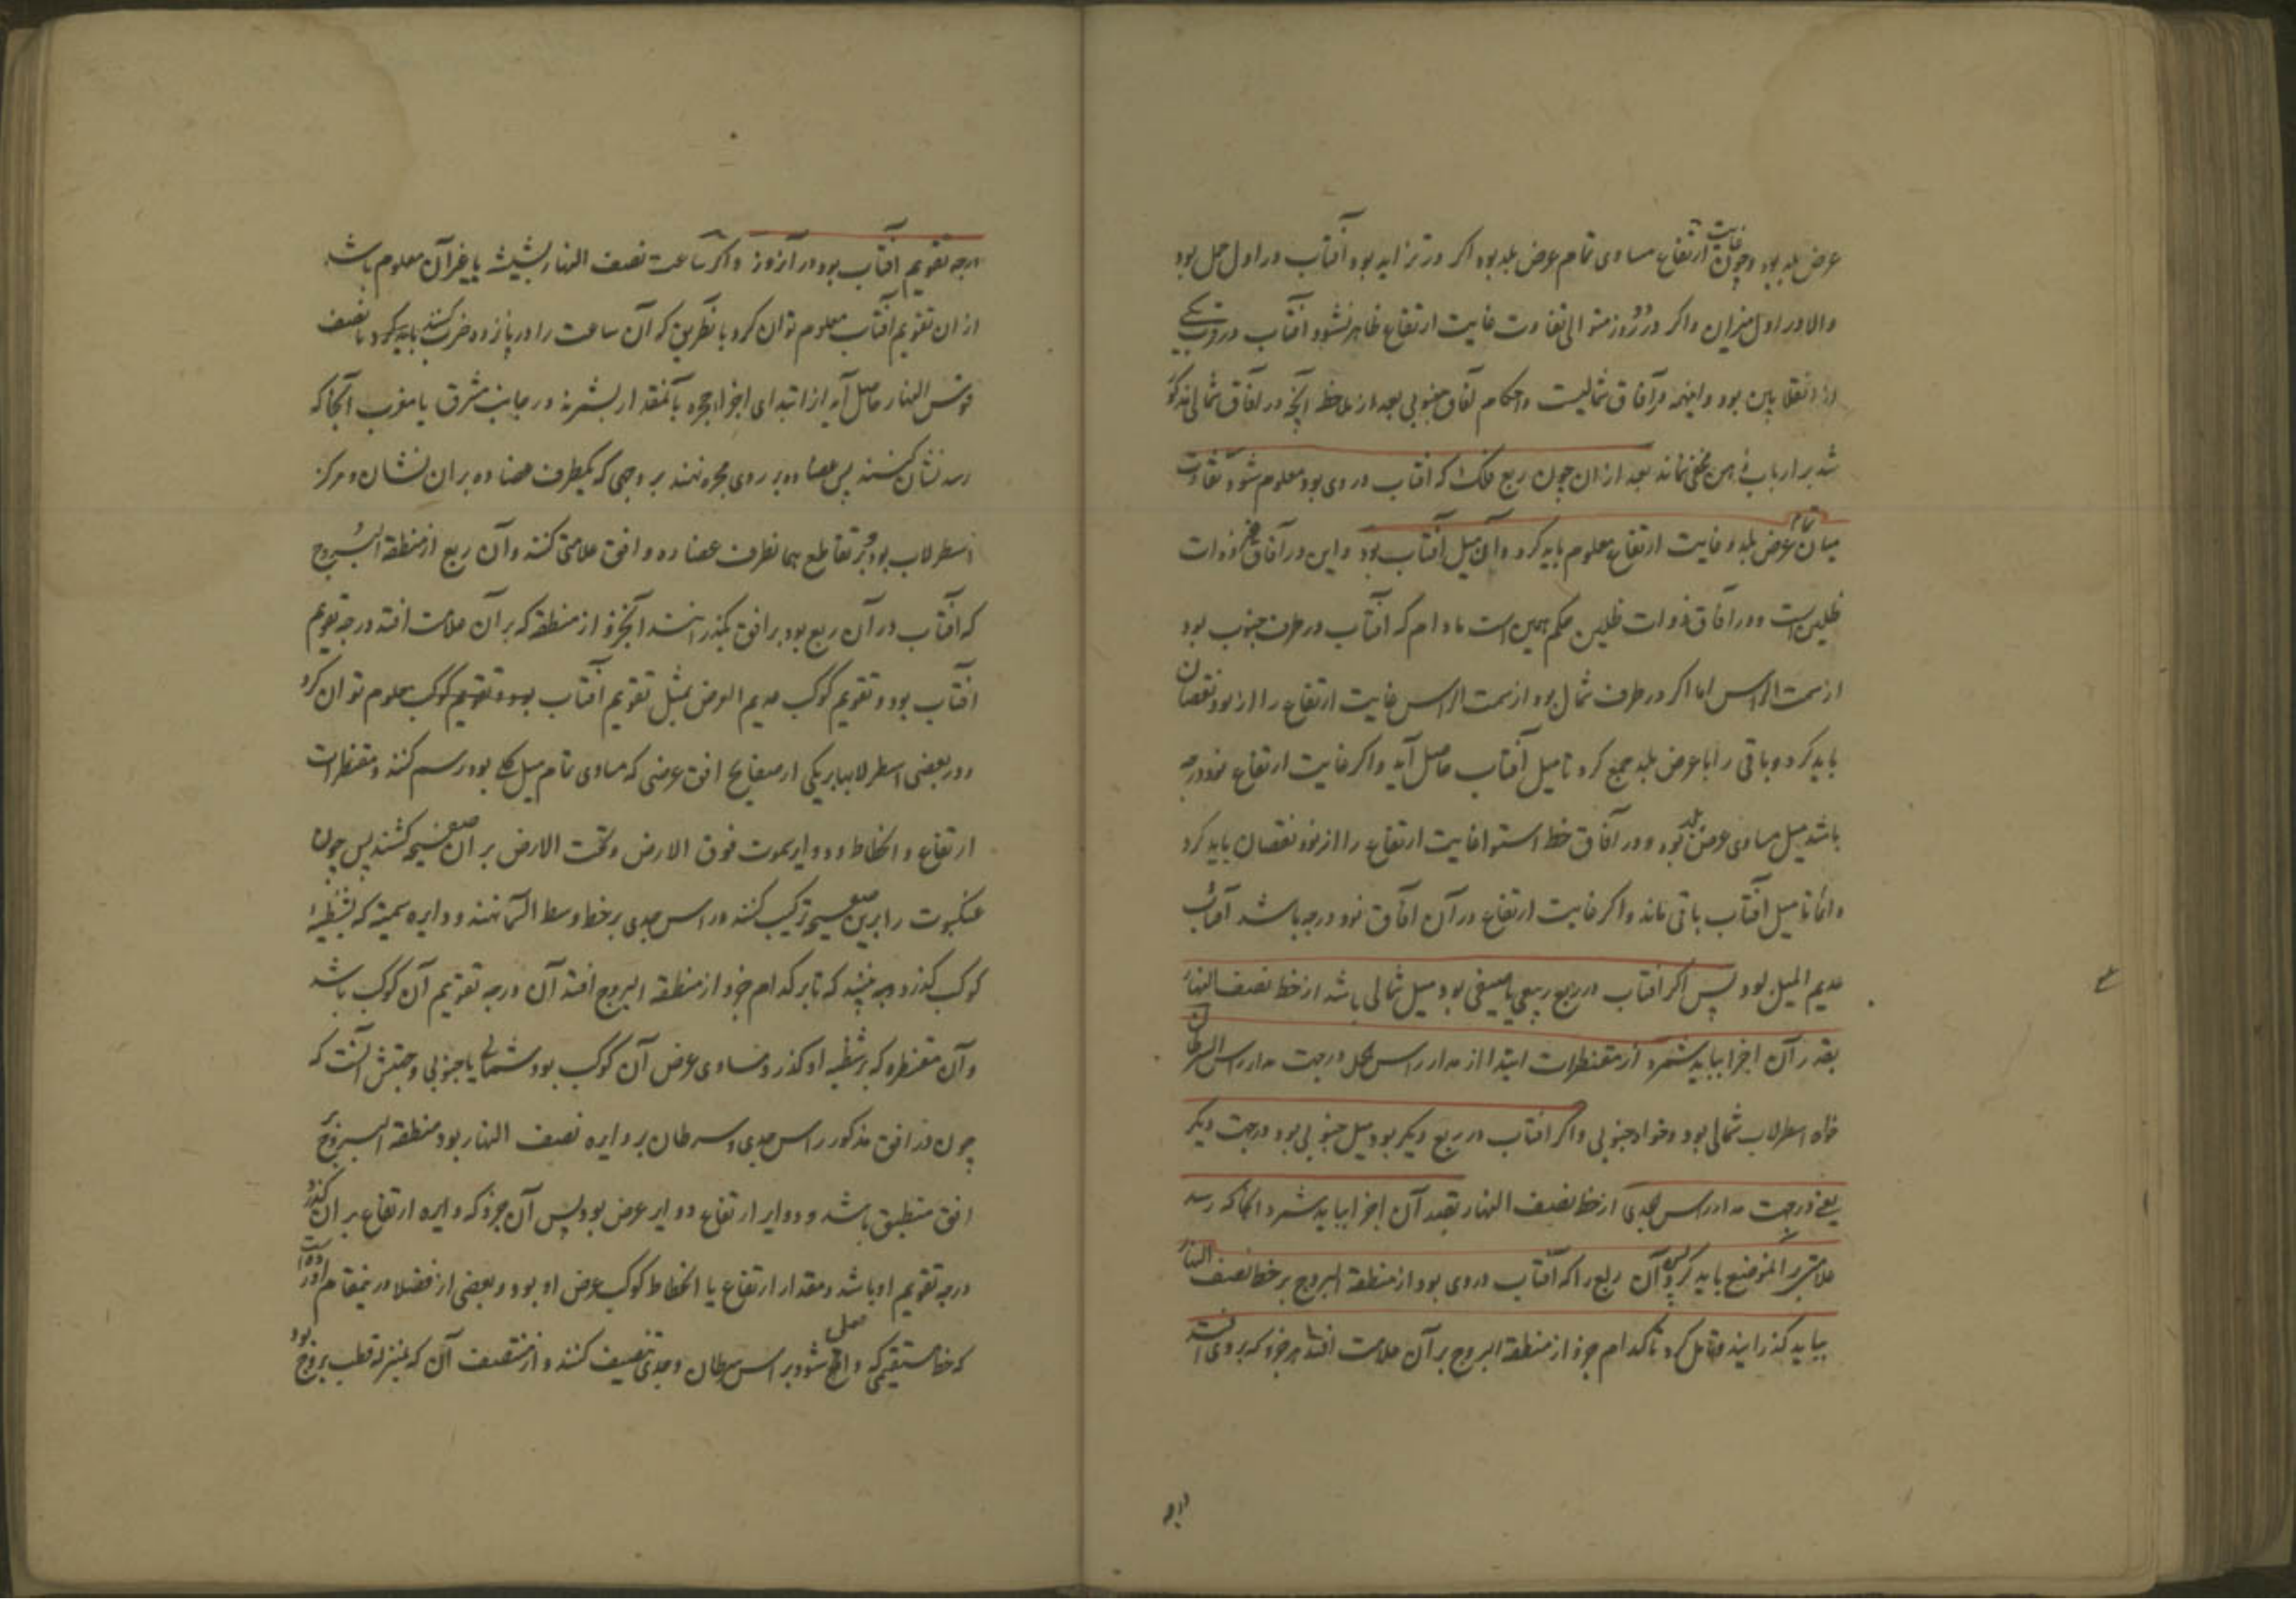 عرض بلد بود و چون غایت ارتفاع مساوی تمام عرض بلد بود اکر در تزاید بود آفتاب در اول حمل بود
والا در اول میزان و اکر در دو روز متوالی تفاوت غایت ارتفاع ظاهر نشود آفتاب در قرب یکی
از انقلابین بود و اینهمه در آفاق شمالیست و احکام آفاق جنوبی بعد از ملاحظه آنچه در آفاق شمالی مذکور
شد بر ارباب ذهن مخفی نماند بعد از ان چون ربع فلک را که افتاب در وی بود معلوم شود تفاوت
میان تمام عرض بلد و غایت ارتفاع معلوم باید کرد و آن میل آفتاب بود و این در آفاق غیر ذوات
ظلین است و در آفاق ذوات ظلین حکم همین است مادام که آفتاب در طرف جنوب بود
از سمت الراس اما اکر در طرف شمال بود از سمت الراس غایت ارتفاع را از نود نقصان
باید کرد و باقی را با عرض بلد جمع کرد تا میل آفتاب حاصل آید و اکر غایت ارتفاع نود درجه
باشد میل مساوی عرض بلد بود و در آفاق خط استوا غایت ارتفاع را از نود نقصان باید کرد
دائما تا میل آفتاب باقی ماند و اکر غایت ارتفاع در آن آفاق نود درجه باشد آفتاب
عدیم المیل بود پس اکر افتاب در ربع ربیعی یا صیفی بود میل شمالی باشد از خط نصف النهار
بقدر آن اجزا بباید شمرد از مقنطرات ابتدا از مدار راس حمل در جهت مدار راس السرطان
خواه اسطرلاب شمالی بود و خواه جنوبی و اکر افتاب در ربع دیکر بود میل جنوبی بود در جهت دیکر
یعنی در جهت مدار راس جدی از خط نصف النهار بقدر آن اجزا بباید شمرد آنجا که رسد
علامتی بر آنموضع باید کرد پس آن ربع را که آفتاب در وی بود از منطقة البروج بر خط نصف النهار
بباید کذرانید و تامل کرد تا کدام جزو از منطقة البروج بر آن علامت افتد هر جزو که بر وی افتد
درجه تقویم آفتاب بود در آن روز و اکر ساعت نصف النهار بشیشه یا غیر آن معلوم باشد
از ان تقویم آفتاب معلوم توان کرد باینطریق که آن ساعت را در پانزده ضرب کنند باید کرد تا نصف
قوس النهار حاصل آید از ابتدای اجزاء حجره بآنمقدار بشمرند در جانب مشرق یا مغرب آنجا که
رسد نشان کنند پس عضاده بر روی حجره نهند بر وجهی که یکطرف عضاده بر ان نشان و مرکز
اسطرلاب بود و بر تقاطع همانطرف عضاده و افق علامتی کنند و آن ربع از منطقة البروج
که آفتاب در آن ربع بود بر افق بکذرانند آنجزو از منطقه که بر آن علامت افتد درجه تقویم
افتاب بود و تقویم کوکب عدیم العرض بمثل تقویم آفتاب معلوم توان کرد
و در بعضی اسطرلابها بر یکی از صفایح افق عرضی که مساوی تمام میل کلی بود رسم کنند و مقنطرات
ارتفاع و انحطاط و دوایر سموت فوق الارض و تحت الارض بر آن صفیحه کشند پس چون
عنکبوت را برین صفیحه ترکیب کنند و راس جدی بر خط وسط السما نهند و دایره سمتیه که بشظیهٔ
کوکب کذرد ببینند که تا بر کدام جزو از منطقة البروج افتد آن درجه تقویم آن کوکب باشد
و آن مقنطره که بر شظیه او کذرد مساوی عرض آن کوکب بود شمالی یا جنوبی و جهتش آنست که
چون در افق مذکور راس جدی و سرطان بر دایره نصف النهار بود منطقة البروج بر
افق منطبق باشد و دوایر ارتفاع دوایر عرض بود پس آن جزو که دایره ارتفاع بر ان کذرد
درجه تقویم او باشد و مقدار ارتفاع یا انحطاط کوکب عرض او بود و بعضی از فضلا درینمقام اورده است
که خط مستقیمی که واصل شود بر راس سرطان و جدی تنصیف کنند و از منتصف آن که بمنزله قطب بروج بود